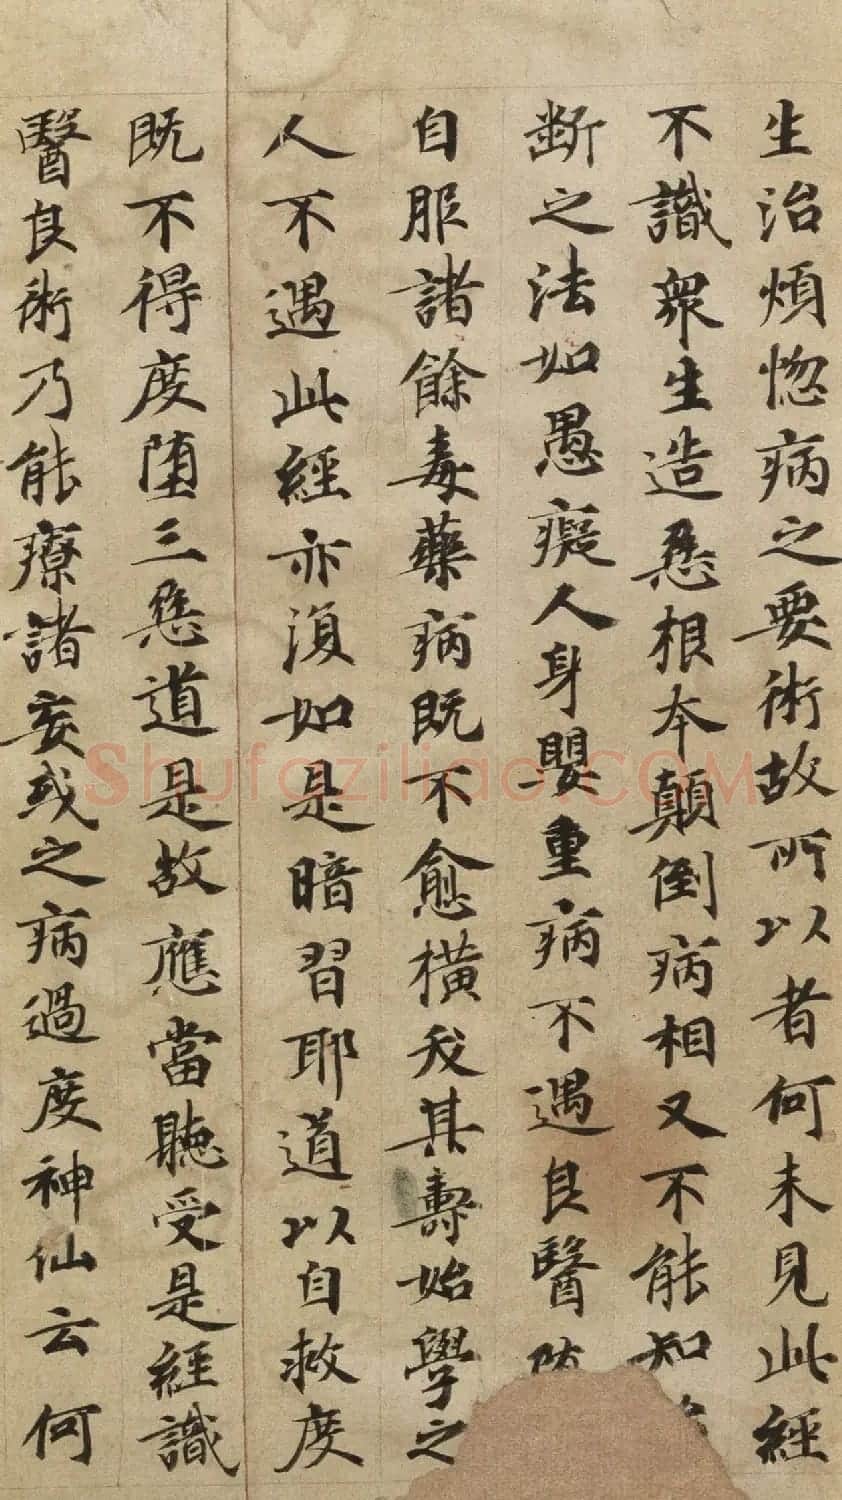 生治煩惚病之要術故所以者何未見此經
不識眾生造惡根本顛倒病相又不能知
斷之法如愚癡人身嬰重病不遇良醫
自服諸餘毒藥病既不愈橫夭其壽始學之
人不遇此經亦復如是暗習耶道以自救度
既不得度墮三惡道是故應當聽受是經識
醫良術乃能療諸妄或之病過度神仙云何
Shufaziliao.COM